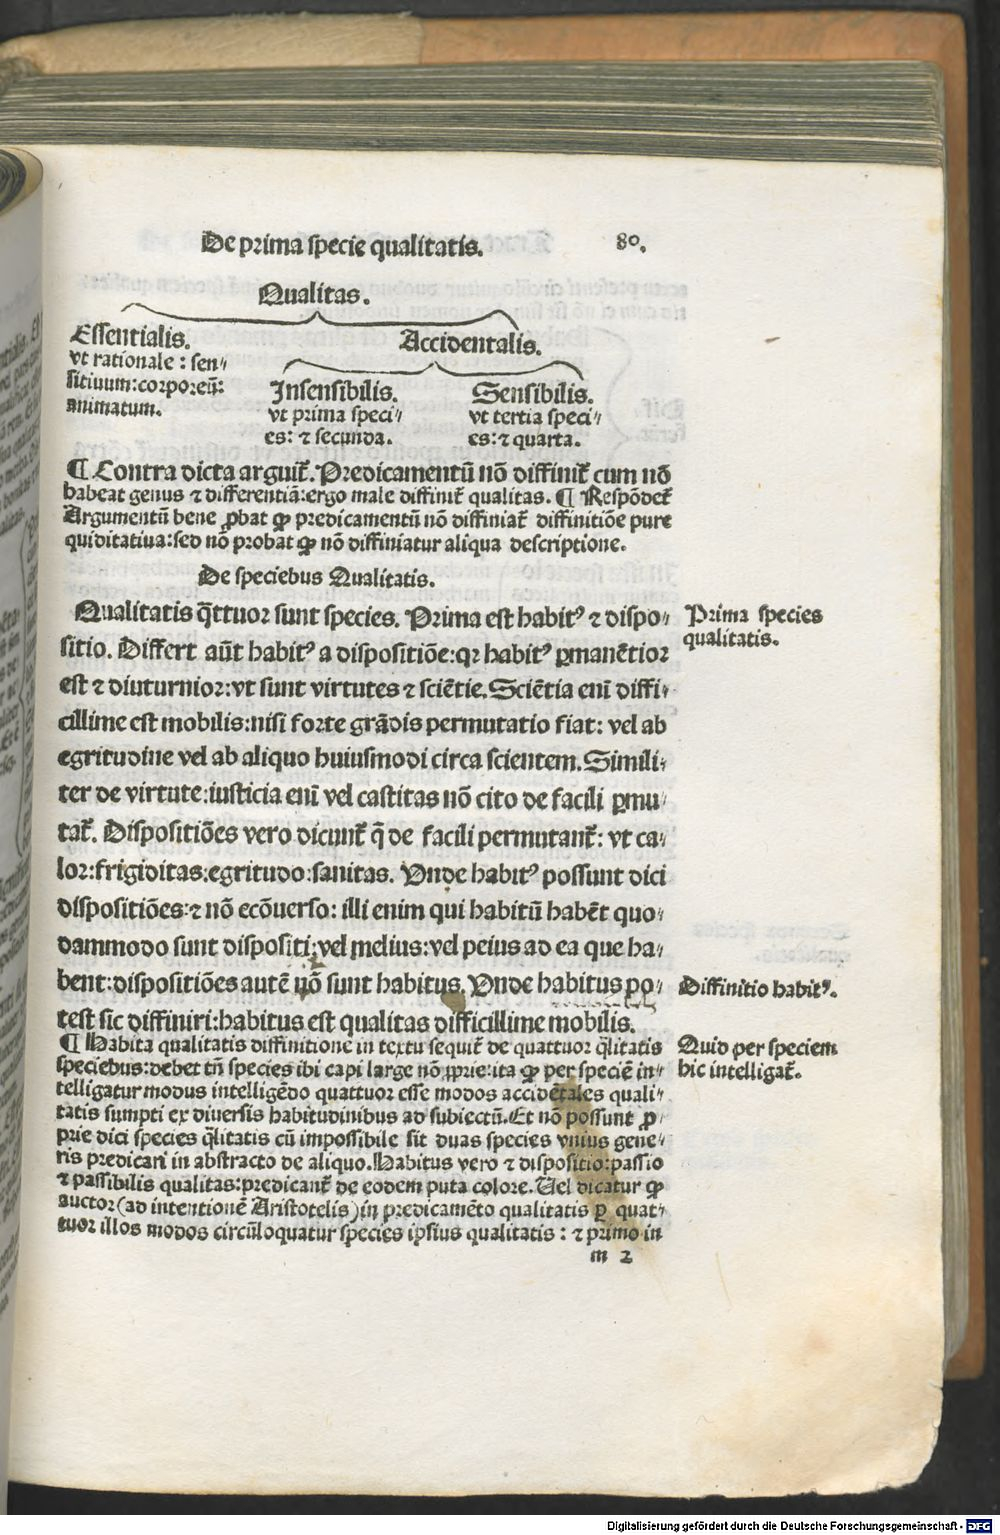 De prima specie qualitatis. 80.
Qualitas.
Essentialis.
vt rationale : sen⸗
sitiuum:corporeū:
animatum.
Accidentalis.
Insensibilis.
vt prima speci⸗
es: ⁊ secunda.
Sensibilis.
vt tertia speci⸗
es: ⁊ quarta.
¶ Contra dicta arguit̃. Predicamentū nō diffinit̃ cum nō
habeat genus ⁊ differentiā:ergo male diffinit̃ qualitas. ¶ Respōdet̃
Argumentū bene ꝓbat ꝙ predicamentū nō diffiniat̃ diffinitiōe pure
quiditatiua:sed nō probat ꝙ nō diffiniatur aliqua descriptione.
De speciebus Qualitatis.
Qualitatis q̄ttuor sunt species. Prima est habitꝰ ⁊ dispo⸗
sitio. Differt aūt habitꝰ a dispositiōe:qꝛ habitꝰ ꝑmanētior
est ⁊ diuturnior:vt sunt virtutes ⁊ sciētie. Sciētia enī diffi⸗
cillime est mobilis:nisi forte grādis permutatio fiat: vel ab
egritudine vel ab aliquo huiusmodi circa scientem. Simili⸗
ter de virtute:iusticia enī vel castitas nō cito de facili ꝑmu⸗
tat̃. Dispositiōes vero dicunt̃ q̄ de facili permutant̃: vt ca⸗
lor:frigiditas:egritudo:sanitas. Vnde habitꝰ possunt dici
dispositiōes:⁊ nō ecōuerso: illi enim qui habitū habēt quo⸗
dammodo sunt dispositi:vel melius:vel peius ad ea que ha⸗
bent:dispositiōes autē nō sunt habitus. Vnde habitus po⸗
test sic diffiniri:habitus est qualitas difficillime mobilis.
¶ Habita qualitatis diffinitione in textu sequit̃ de quattuor q̄litatis
speciebus:debet tn̄ species ibi capi large nō ꝓprie:ita ꝙ per speciē in⸗
telligatur modus intelligēdo quattuor esse modos accidētales quali⸗
tatis sumpti ex diuersis habitudinibus ad subiectū. Et nō possunt ꝓ⸗
prie dici species q̄litatis cū impossibile sit duas species vnius gene⸗
ris predicari in abstracto de aliquo. Habitus vero ⁊ dispositio:passio
⁊ passibilis qualitas:predicant̃ de eodem puta colore. Uel dicatur ꝙ
auctor (ad intentionē Aristotelis) in predicamēto qualitatis ꝑ quat⸗
tuor illos modos circūloquatur species ipsius qualitatis : ⁊ primo in
m 2
Prima species
qualitatis.
Diffinitio habitꝰ.
Quid per speciem
hic intelligat̃.
Digitalisierung gefördert durch die Deutsche Forschungsgemeinschaft - DFG